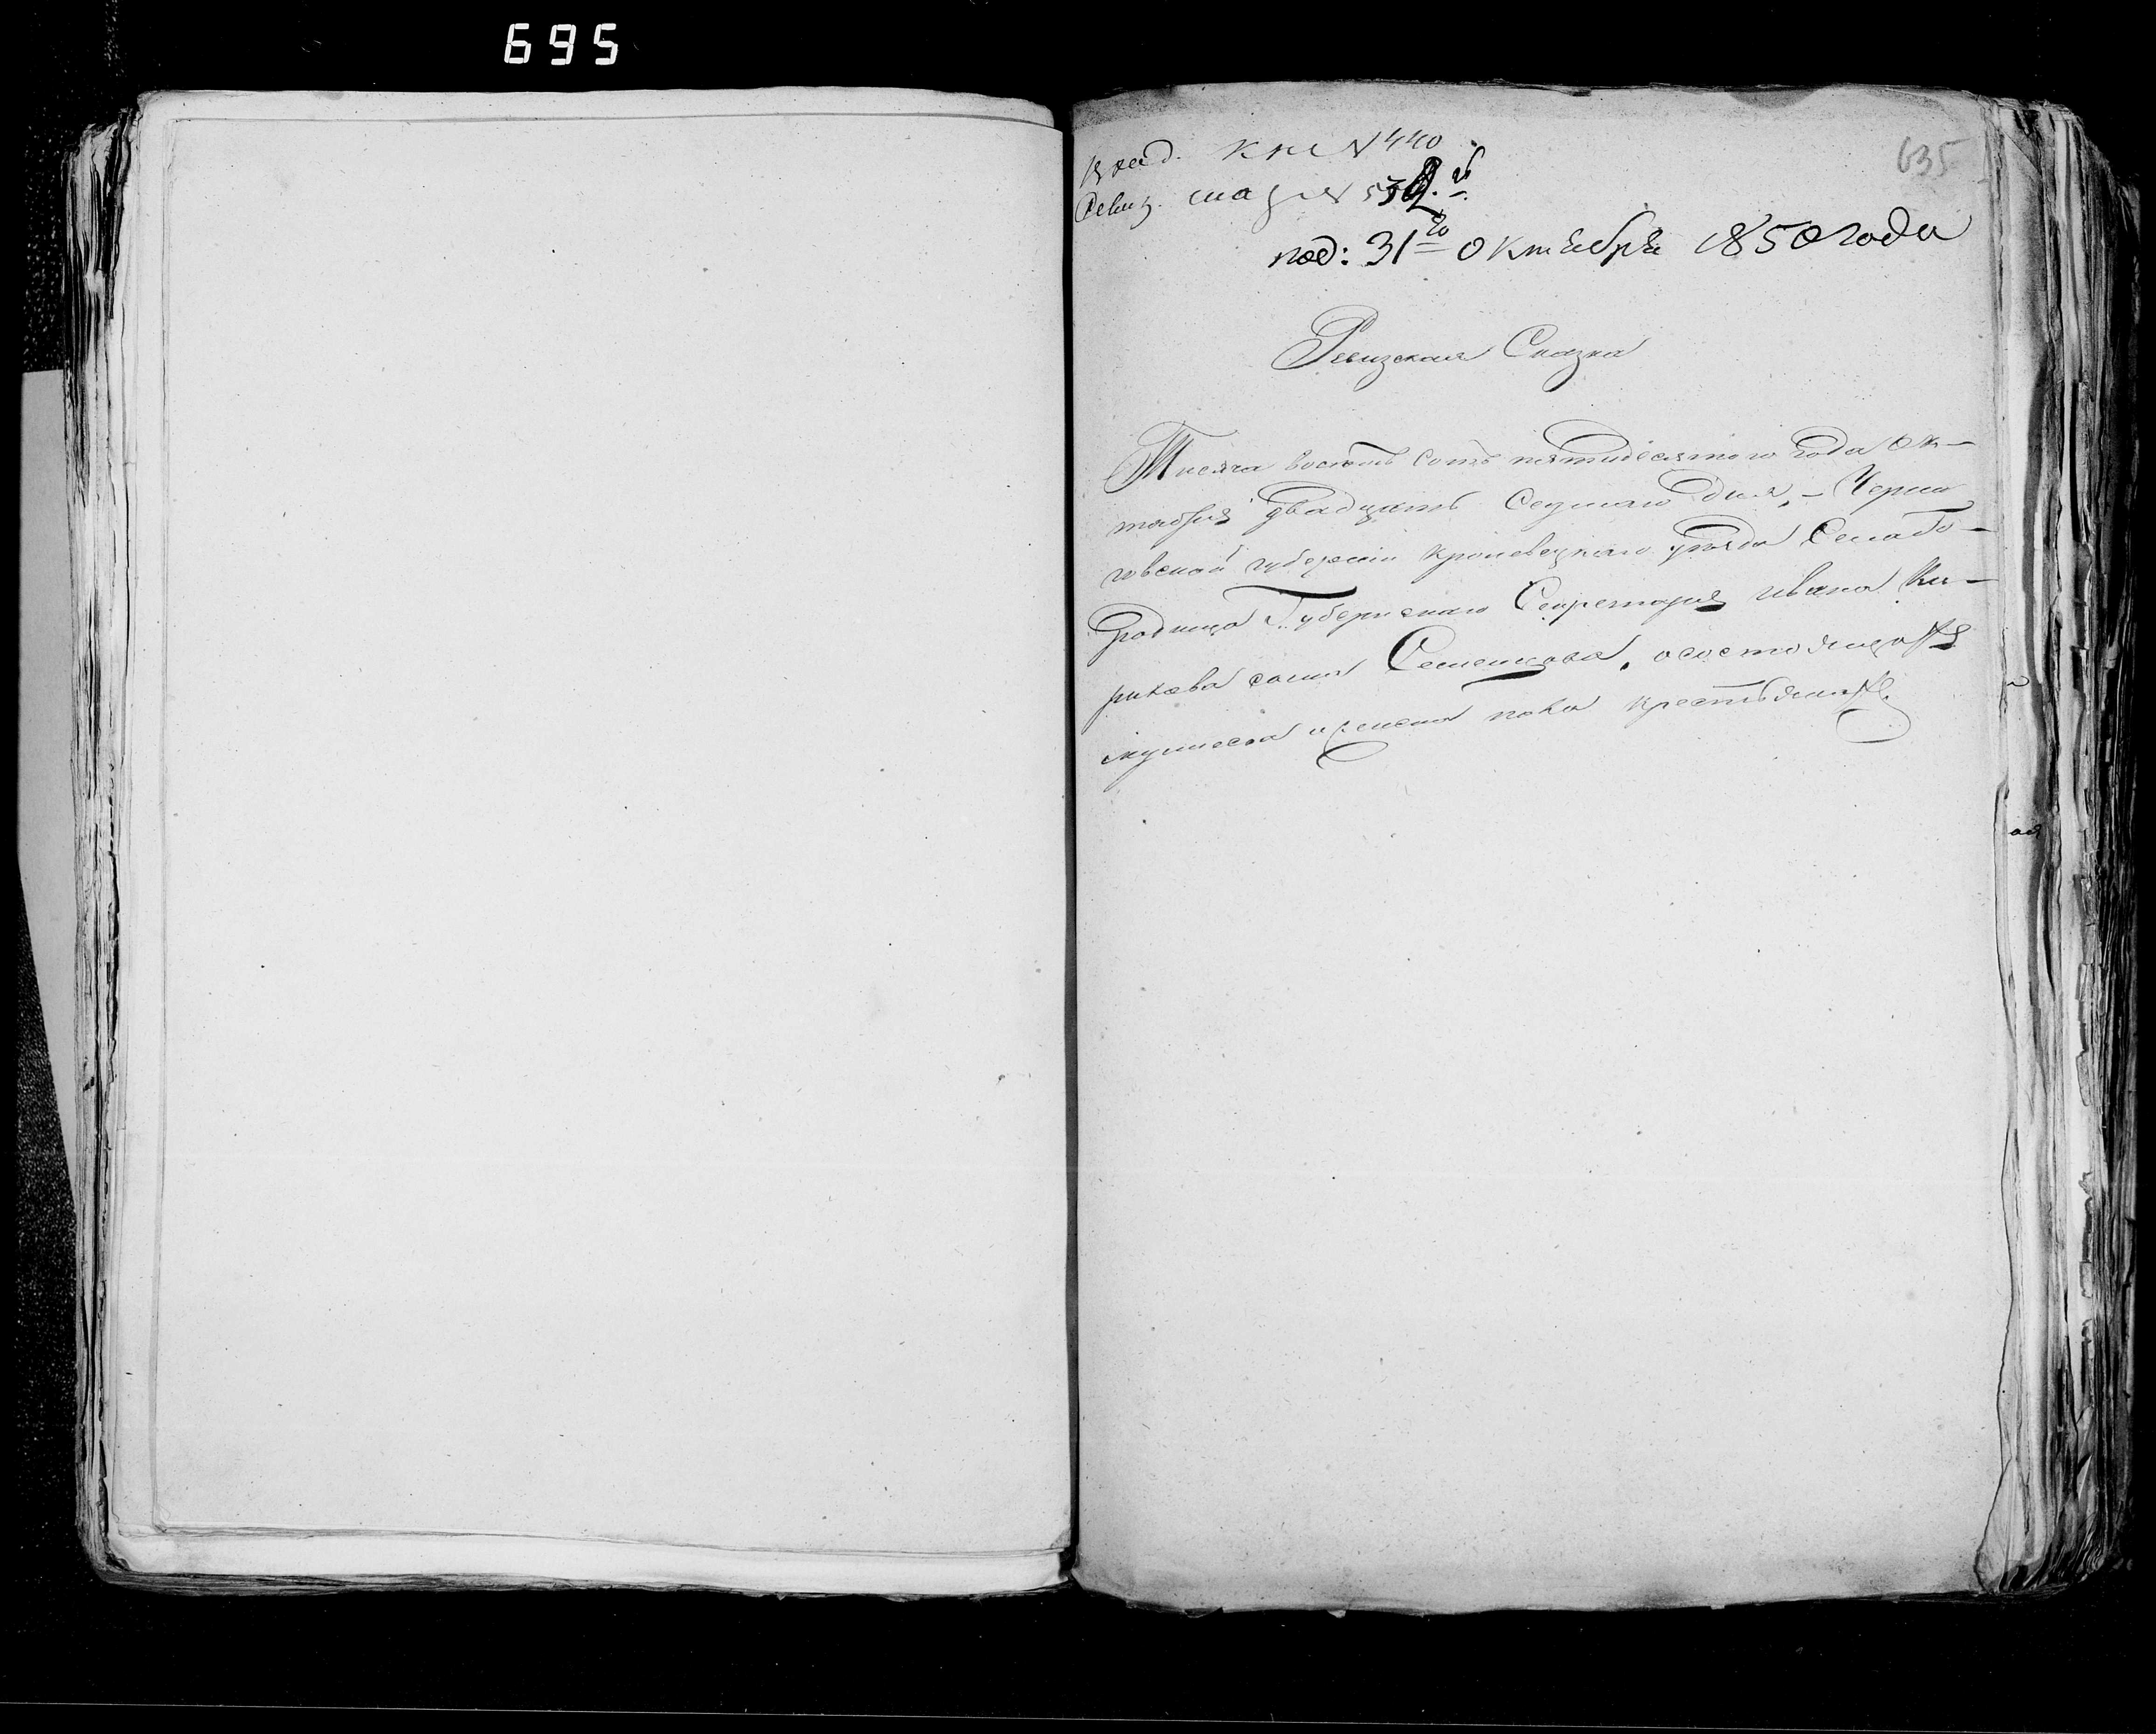 695
635
влад. кн. № 440
Ревиз. сказ. №
под: 31го Октября 1850 года
Ревизская Сказка
Тысяча восемь сотъ пятидесятого года Ок-
тября двадцать седмаго дня, - Черни
говской губерніи Кролевецкаго уѣзда Села
Губернскаго Секретаря Ивана Ки-
рилова сына Семенцова, о состоящихъ
мужеска и женска пола крестьянахъ.